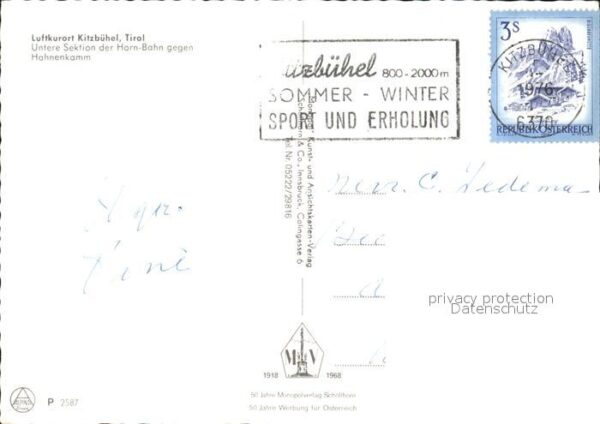 Luftkurort Kitzbühel, Tirol
Untere Sektion der Horn-Bahn gegen
Hahnenkamm
Kitzbühel 800-2000m
SOMMER - WINTER
SPORT UND ERHOLUNG
3S
KITZBÜHEL
1976
6370
REPUBLIK ÖSTERREICH
Kunst- und Ansichtskarten-Verlag
& Co., Innsbruck, Colingasse 6
Tel. Nr. 05222/29816
C.
René
privacy protection
Datenschutz
M V
1918 1968
P 2587
50 Jahre Monopolverlag Schöllhorn
50 Jahre Werbung für Österreich